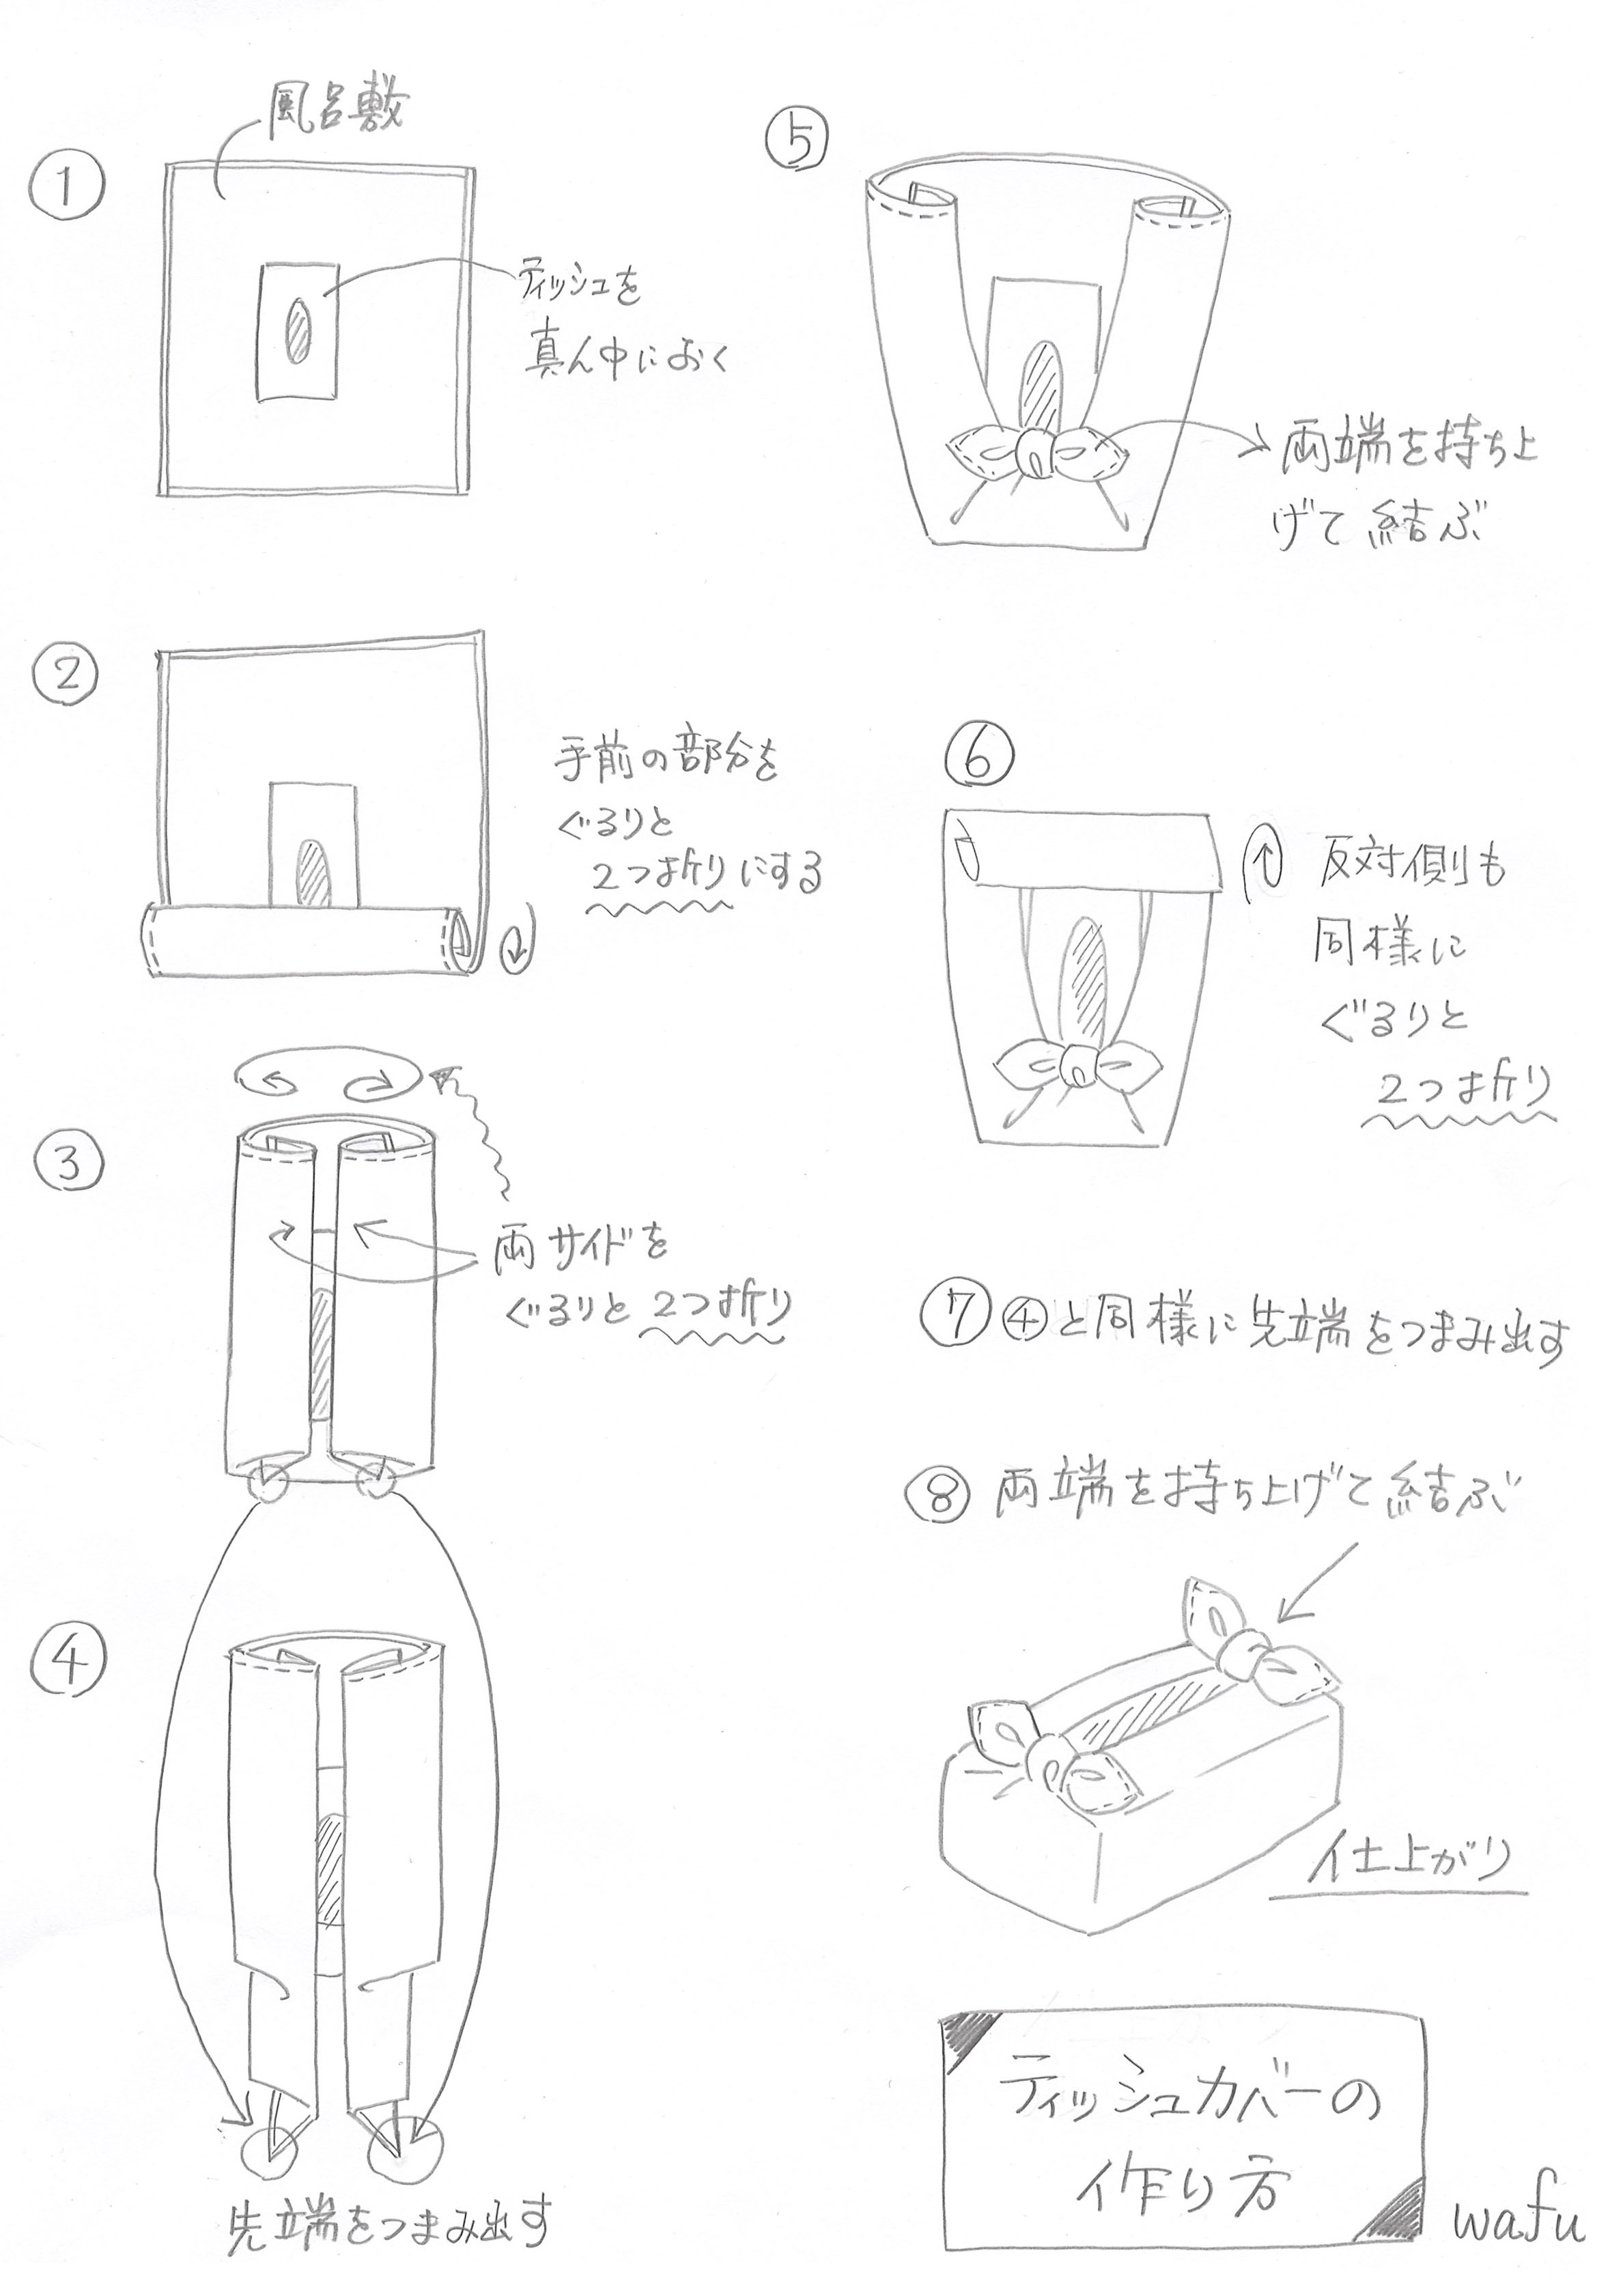 ①
風呂敷
ティッシュを
真ん中におく
②
手前の部分を
ぐるりと
2つ折りにする
③
両サイドを
ぐるりと2つ折り
④
先端をつまみ出す
⑤
両端を持ち上
げて結ぶ
⑥
反対側も
同様に
ぐるりと
2つ折り
⑦④と同様に先端をつまみ出す
⑧両端を持ち上げて結ぶ
仕上がり
ティッシュカバーの
作り方
wafu